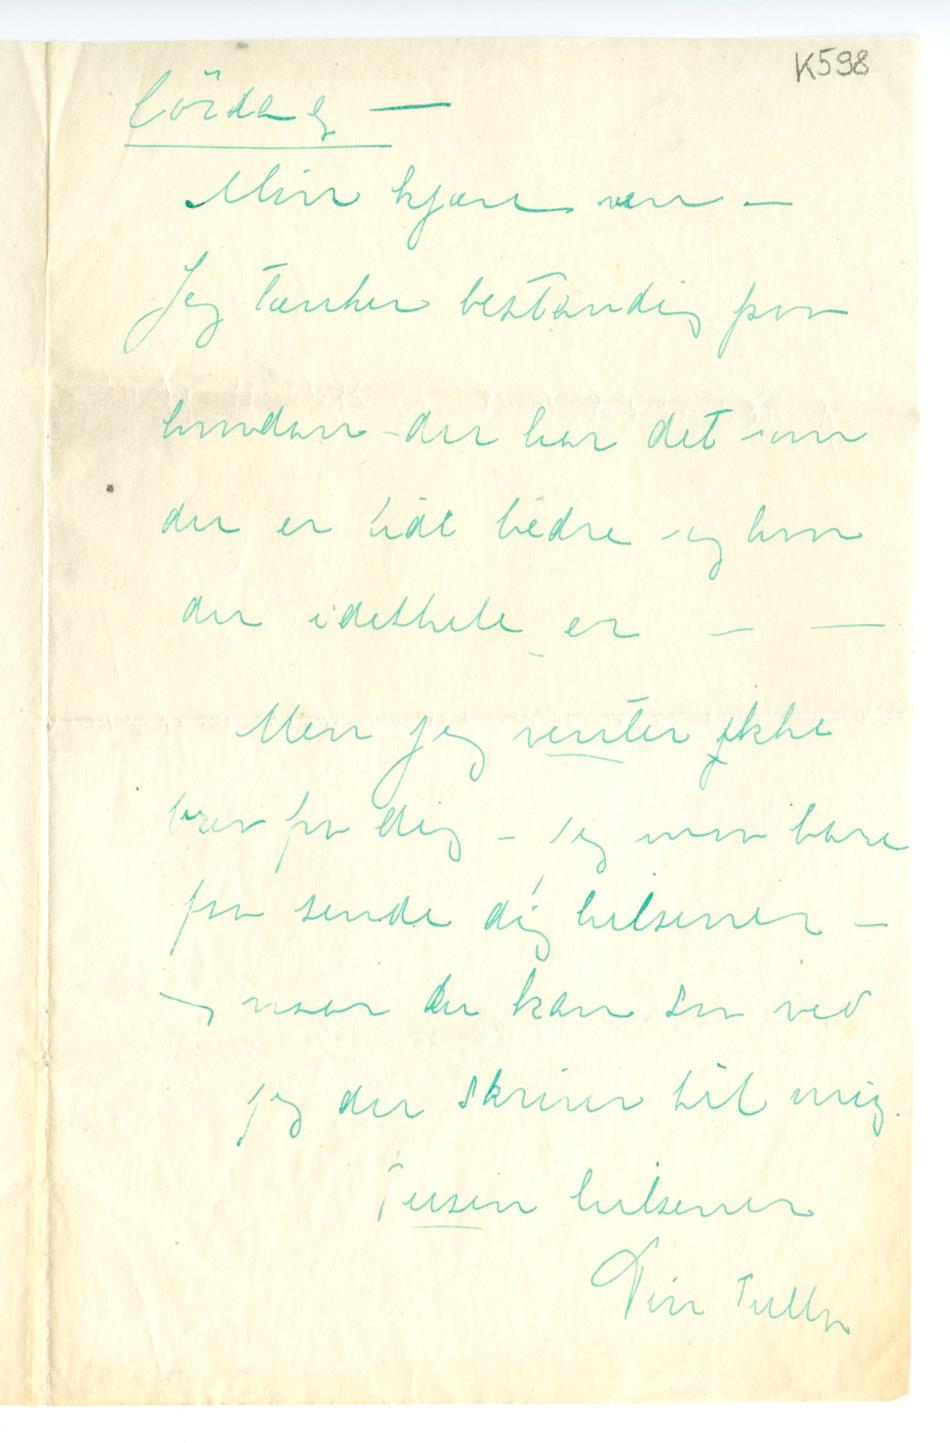 K598
Lördag —
Min kjære ven —
Jeg tænker bestandig paa
hvordan du har det – om
du er lidt bedre – og hvor
du idethele er — —
Men jeg venter ikke
brev fra dig – jeg maa bare
faa sende dig hilsener —
og naar du kan saa ved
jeg du skriver til mig.
Tusen hilsener
Din Tulla